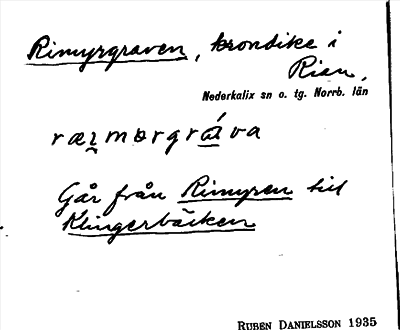 Rimyrgraven, krondike i
Rian,
Nederkalix sn o. tg. Norrb. län
Går från Rimyren till
Klingerbäcken
RUBEN DANIELSSON 1935